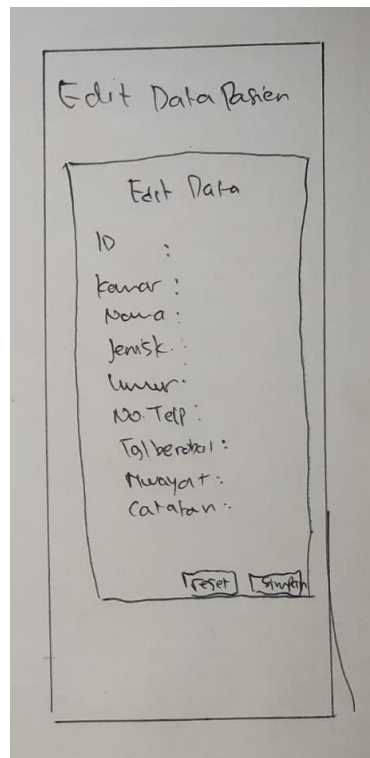 Edit Data Pasien
Edit Data
ID :
Kamar :
Nama :
Jenisk. :
Umur :
No. Telp :
Tgl berobat :
Riwayat :
Catatan :
reset Simpan